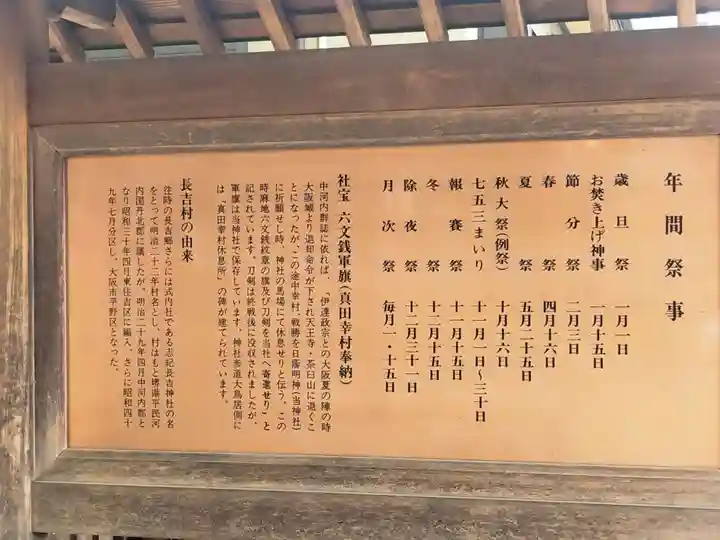 年間祭事
歳旦祭 一月一日
お焚き上げ神事 一月十五日
節分祭 二月三日
春祭 四月十六日
夏祭 五月二十五日
秋大祭(例祭) 十月十六日
七五三まいり 十一月一日〜三十日
報賽祭 十一月十五日
冬祭 十二月十五日
除夜祭 十二月三十一日
月次祭 毎月一・十五日
社宝 六文銭軍旗(真田幸村奉納)
中河内郡誌に依れば、「伊達政宗との大阪夏の陣の時
大阪城より退却命令が下され天王寺・茶臼山に退くこ
とになったが、この途中幸村、戦勝を日蔭明神(当神社)
に祈願せし時、神社の馬場にて休息せりと伝う。この
時麻地六文銭紋章の旗及び刀剣を当社へ寄進せり」と
記されています。刀剣は終戦後に没収されましたが、
軍旗は当神社で保存しています。神社参道大鳥居側に
は、「真田幸村休息所」の碑が建てられています。
長吉村の由来
往時の長吉郷さらには式内社である志紀長吉神社の名
をとって明治二十二年村名とし、村はもと堺県平民河
内国丹北郡に属したが、明治二十九年四月中河内郡と
なり昭和三十年四月東住吉区に編入。さらに昭和四十
九年七月分区し、大阪市平野区となった。